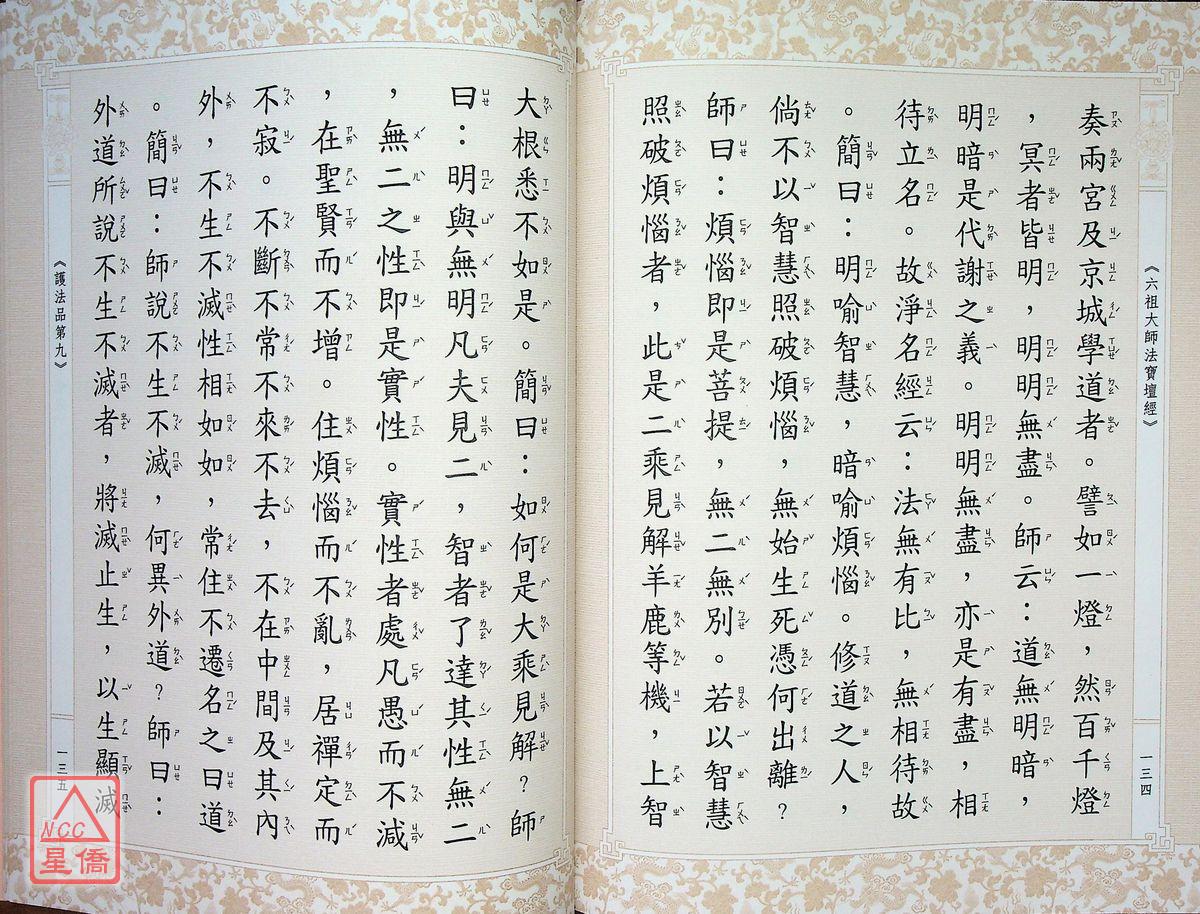 《六祖大師法寶壇經》
一三四
奏兩宮及京城學道者。譬如一燈，然百千燈
，冥者皆明，明明無盡。師云：道無明暗，
明暗是代謝之義。明明無盡，亦是有盡，相
待立名。故淨名經云：法無有比，無相待故
。簡曰：明喻智慧，暗喻煩惱。修道之人，
倘不以智慧照破煩惱，無始生死憑何出離？
師曰：煩惱即是菩提，無二無別。若以智慧
照破煩惱者，此是二乘見解羊鹿等機，上智
大根悉不如是。簡曰：如何是大乘見解？師
曰：明與無明凡夫見二，智者了達其性無二
，無二之性即是實性。實性者處凡愚而不減
，在聖賢而不增。住煩惱而不亂，居禪定而
不寂。不斷不常不來不去，不在中間及其內
外，不生不滅性相如如，常住不遷名之曰道
。簡曰：師說不生不滅，何異外道？師曰：
外道所說不生不滅者，將滅止生，以生顯滅
《護法品第九》
一三五
NCC
星僑